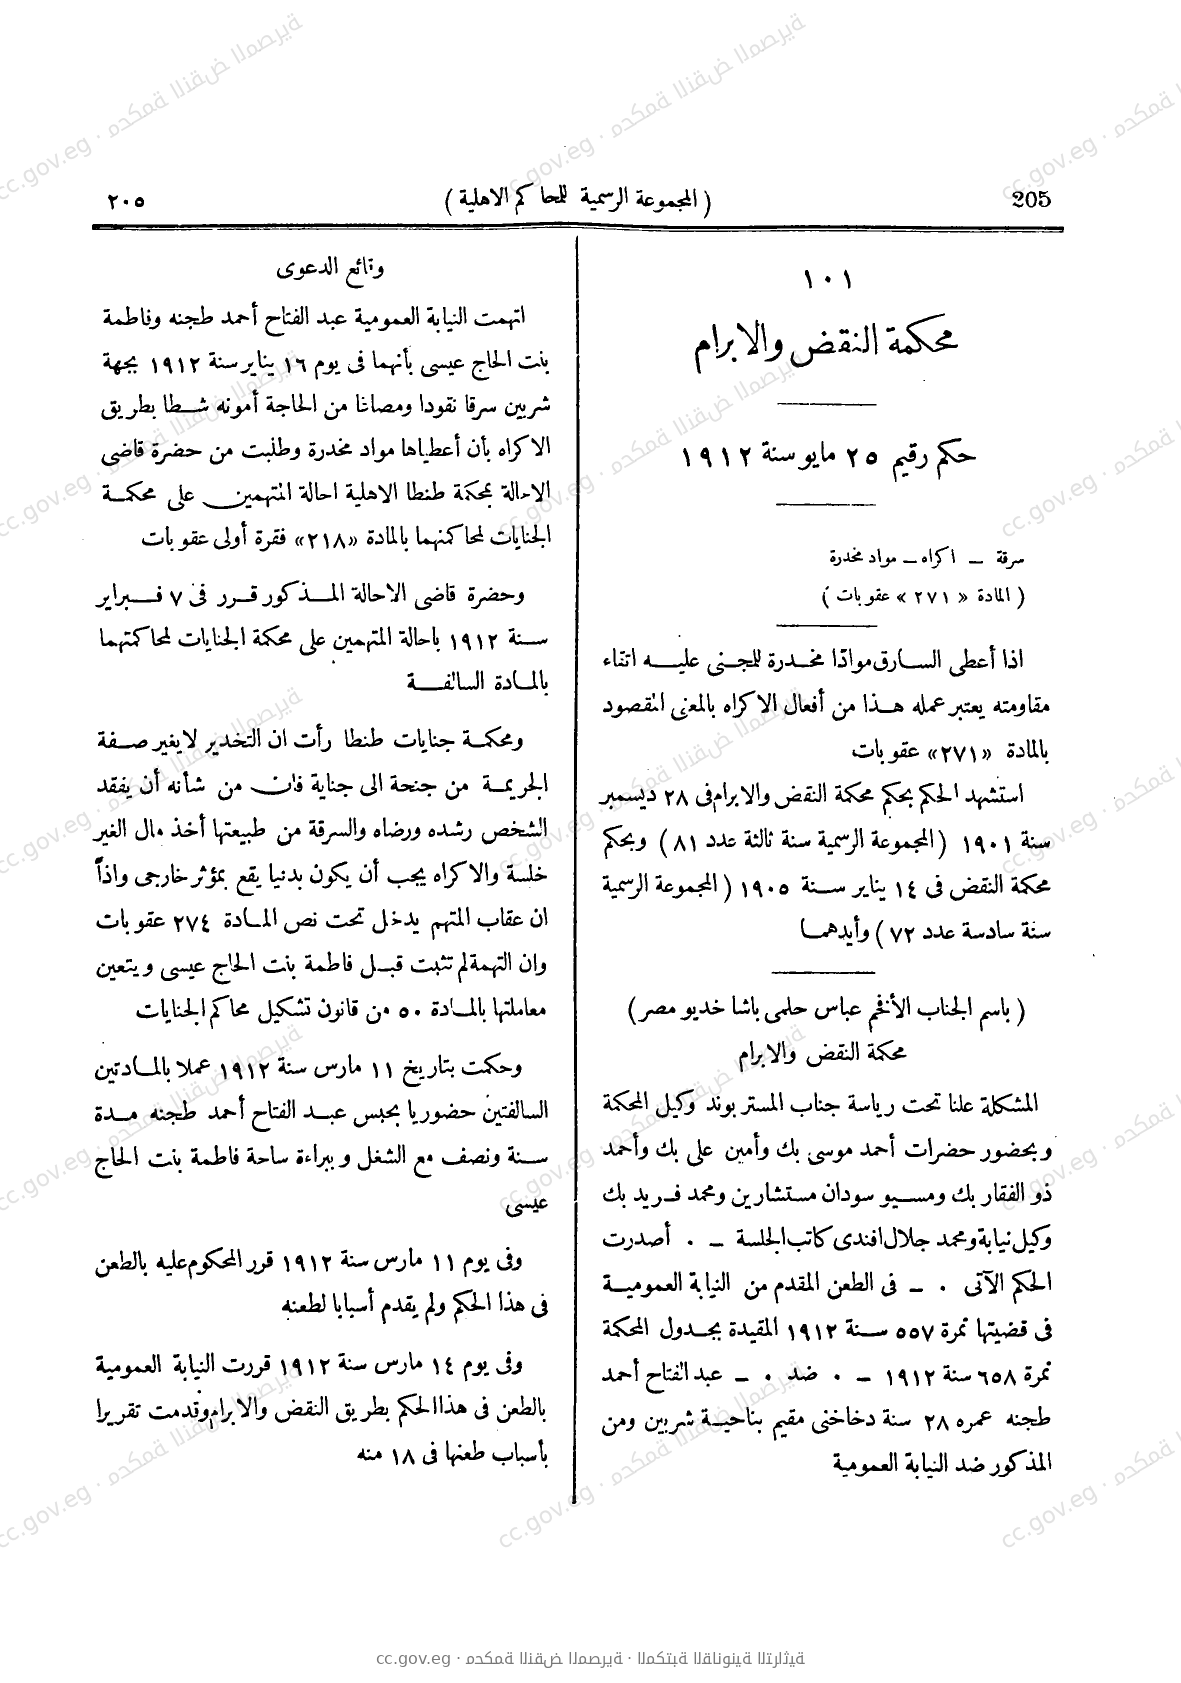 205
( المجموعة الرسمية للمحاكم الاهلية )
٢٠٥
١٠١
محكمة النقض والابرام
حكم رقيم ٢٥ مايو سنة ١٩١٢
سرقة – اكراه – مواد مخدرة
( المادة « ٢٧١ » عقوبات )
اذا أعطى السارق موادّا مخدرة للمجنى عليه اثناء
مقاومته يعتبر عمله هذا من أفعال الاكراه بالمعنى المقصود
بالمادة «٢٧١» عقوبات
استشهد الحكم بحكم محكمة النقض والابرام فى ٢٨ ديسمبر
سنة ١٩٠١ ( المجموعة الرسمية سنة ثالثة عدد ٨١ ) وبحكم
محكمة النقض فى ١٤ يناير سنة ١٩٠٥ ( المجموعة الرسمية
سنة سادسة عدد ٧٢ ) وأيدهما
( باسم الجناب الأفخم عباس حلمى باشا خديو مصر )
محكمة النقض والابرام
المشكلة علنا تحت رياسة جناب المستر بوند وكيل المحكمة
وبحضور حضرات أحمد موسى بك وأمين على بك وأحمد
ذو الفقار بك ومسيو سودان مستشارين ومحمد فريد بك
وكيل نيابة ومحمد جلال افندى كاتب الجلسة – ٠ أصدرت
الحكم الآتى ٠ – فى الطعن المقدم من النيابة العمومية
فى قضيتها نمرة ٥٥٧ سنة ١٩١٢ المقيدة بجدول المحكمة
نمرة ٦٥٨ سنة ١٩١٢ – ٠ ضد ٠ – عبد الفتاح أحمد
طجنه عمره ٢٨ سنة دخاخنى مقيم بناحية شربين ومن
المذكور ضد النيابة العمومية
وقائع الدعوى
اتهمت النيابة العمومية عبد الفتاح أحمد طجنه وفاطمة
بنت الحاج عيسى بأنهما فى يوم ١٦ يناير سنة ١٩١٢ بجهة
شربين سرقا نقودا ومصاغا من الحاجة أمونه شطا بطريق
الاكراه بأن أعطياها مواد مخدرة وطلبت من حضرة قاضى
الاحالة بمحكمة طنطا الاهلية احالة المتهمين على محكمة
الجنايات لمحاكمتهما بالمادة «٢١٨» فقرة أولى عقوبات
وحضرة قاضى الاحالة المذكور قرر فى ٧ فبراير
سنة ١٩١٢ باحالة المتهمين على محكمة الجنايات لمحاكمتهما
بالمادة السالفة
ومحكمة جنايات طنطا رأت ان التخدير لايغير صفة
الجريمة من جنحة الى جناية فان من شأنه أن يفقد
الشخص رشده ورضاه والسرقة من طبيعتها أخذ مال الغير
خلسة والاكراه يجب أن يكون بدنيا يقع بمؤثر خارجى واذاً
ان عقاب المتهم يدخل تحت نص المادة ٢٧٤ عقوبات
وان التهمة لم تثبت قبل فاطمة بنت الحاج عيسى ويتعين
معاملتها بالمادة ٥٠ من قانون تشكيل محاكم الجنايات
وحكمت بتاريخ ١١ مارس سنة ١٩١٢ عملا بالمادتين
السالفتين حضوريا بحبس عبد الفتاح أحمد طجنه مدة
سنة ونصف مع الشغل وببراءة ساحة فاطمة بنت الحاج
عيسى
وفى يوم ١١ مارس سنة ١٩١٢ قرر المحكوم عليه بالطعن
فى هذا الحكم ولم يقدم أسبابا لطعنه
وفى يوم ١٤ مارس سنة ١٩١٢ قررت النيابة العمومية
بالطعن فى هذا الحكم بطريق النقض والابرام وقدمت تقريرا
بأسباب طعنها فى ١٨ منه
cc.gov.eg · محكمة النقض المصرية · المكتبة القانونية التراثية